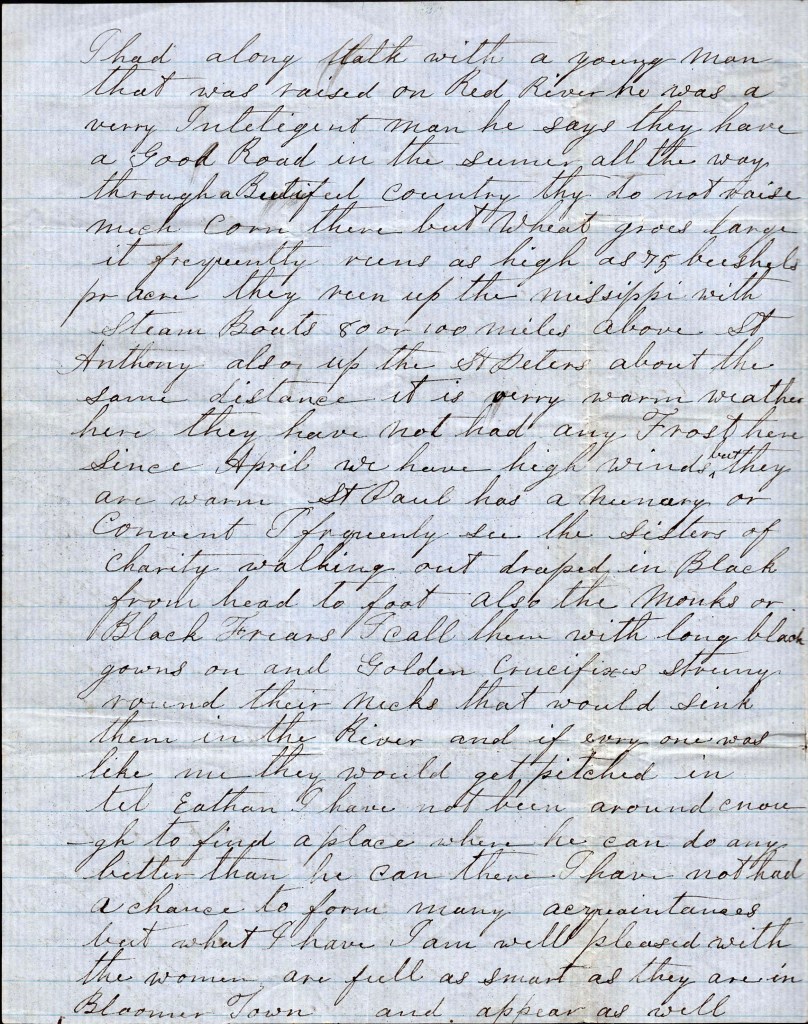 I had along talk with a young man
that was raised on Red River he was a
verry Inteligent man he says they have
a Good Road in the sumer all the way
through a Beutifel country thy do not raise
much corn there but Wheat groes large
it frequently runs as high as 75 bushels
pr acre they run up the missippi with
Steam Boats 80 or 100 miles above St
Anthony also up the St Peters about the
same distance it is verry warm weather
here they have not had any Frost here
since April we have high winds but they
are warm St Paul has a Nunery or
Convent I frquenly see the sisters of
charity walking out draped in Black
from head to foot also the Monks or
Black Friars I call them with long black
gowns on and Golden Crucifixes strung
round their necks that would sink
them in the River and if evry one was
like me they would get pitched in
tel Eathan I have not been around enou
-gh to find a place where he can do any
better than he can there I have not had
a chance to form many acquaintances
but what I have I am well pleased with
the women are full as smart as they are in
Bloomer Town and appear as well